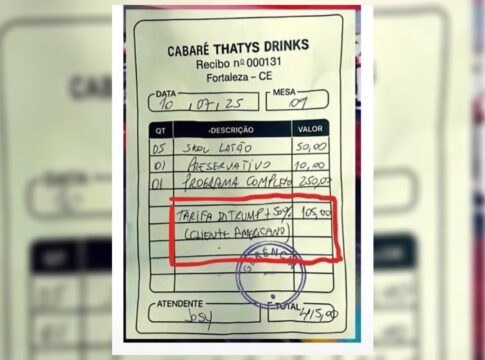 CABARÉ THATYS DRINKS
Recibo nº 000131
Fortaleza - CE
DATA 10,07,25 MESA 09
QT DESCRIÇÃO VALOR
05 SKOL LATÃO 50,00
01 PRESERVATIVO 10,00
01 PROGRAMA COMPLETO 250,00
TARIFA DO TRUMP + 50% 105,00
(CLIENTE AMERICANO)
GERÊNCIA
ATENDENTE TOTAL
Josy 415,00